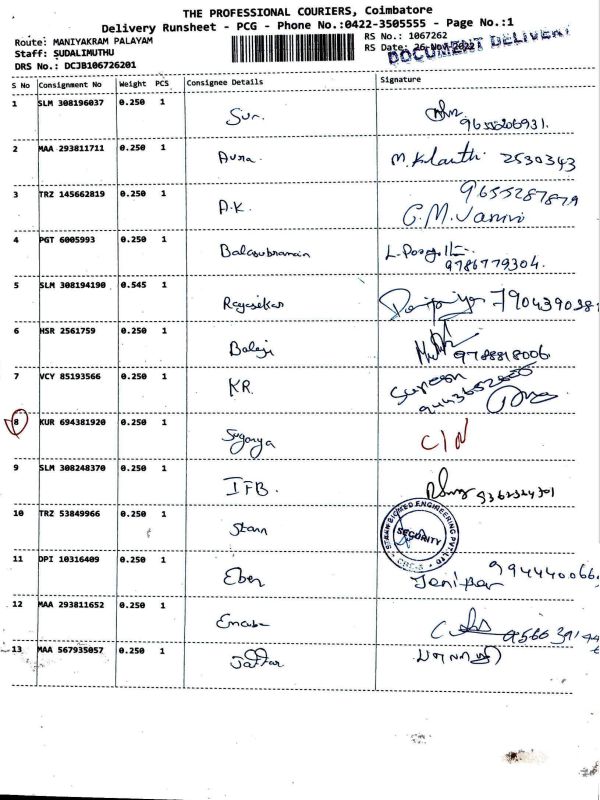 THE PROFESSIONAL COURIERS, Coimbatore
Delivery Runsheet - PCG - Phone No.:0422-3505555 - Page No.:1
Route: MANIYAKRAM PALAYAM
Staff: SUDALIMUTHU
DRS No.: DCJB106726201
RS No.: 1067262
RS Date: 26-Nov-2022
DOCUMENT DELIVERY
S No Consignment No Weight PCS Consignee Details Signature
1 SLM 308196037 0.250 1 Sur. 9655206931.
2 MAA 293811711 0.250 1 2530343
3 TRZ 145662819 0.250 1 A.K. 9655287879
4 PGT 6005993 0.250 1 Balasubramain 9786779304.
5 SLM 308194190 0.545 1 Rayasekar
6 HSR 2561759 0.250 1 Balaji 9788818006
7 VCY 85193566 0.250 1 KR.
8 KUR 694381920 0.250 1 Suganya C/N
9 SLM 308248370 0.250 1 IFB.
10 TRZ 53849966 0.250 1 Stann
BIOMED ENGINEERING PVT. LTD
SECURITY
CBE-6
11 DPI 10316409 0.250 1 Eben Jenifar
12 MAA 293811652 0.250 1
13 MAA 567935057 0.250 1